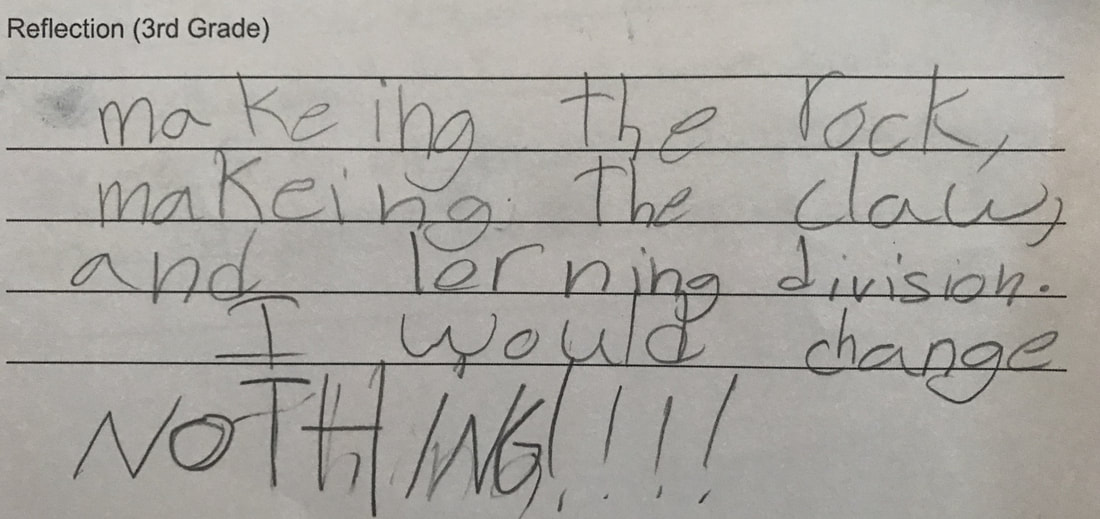 Reflection (3rd Grade)
makeing the rock,
makeing the claw,
and lerning division.
I would change
NOTHING!!!!